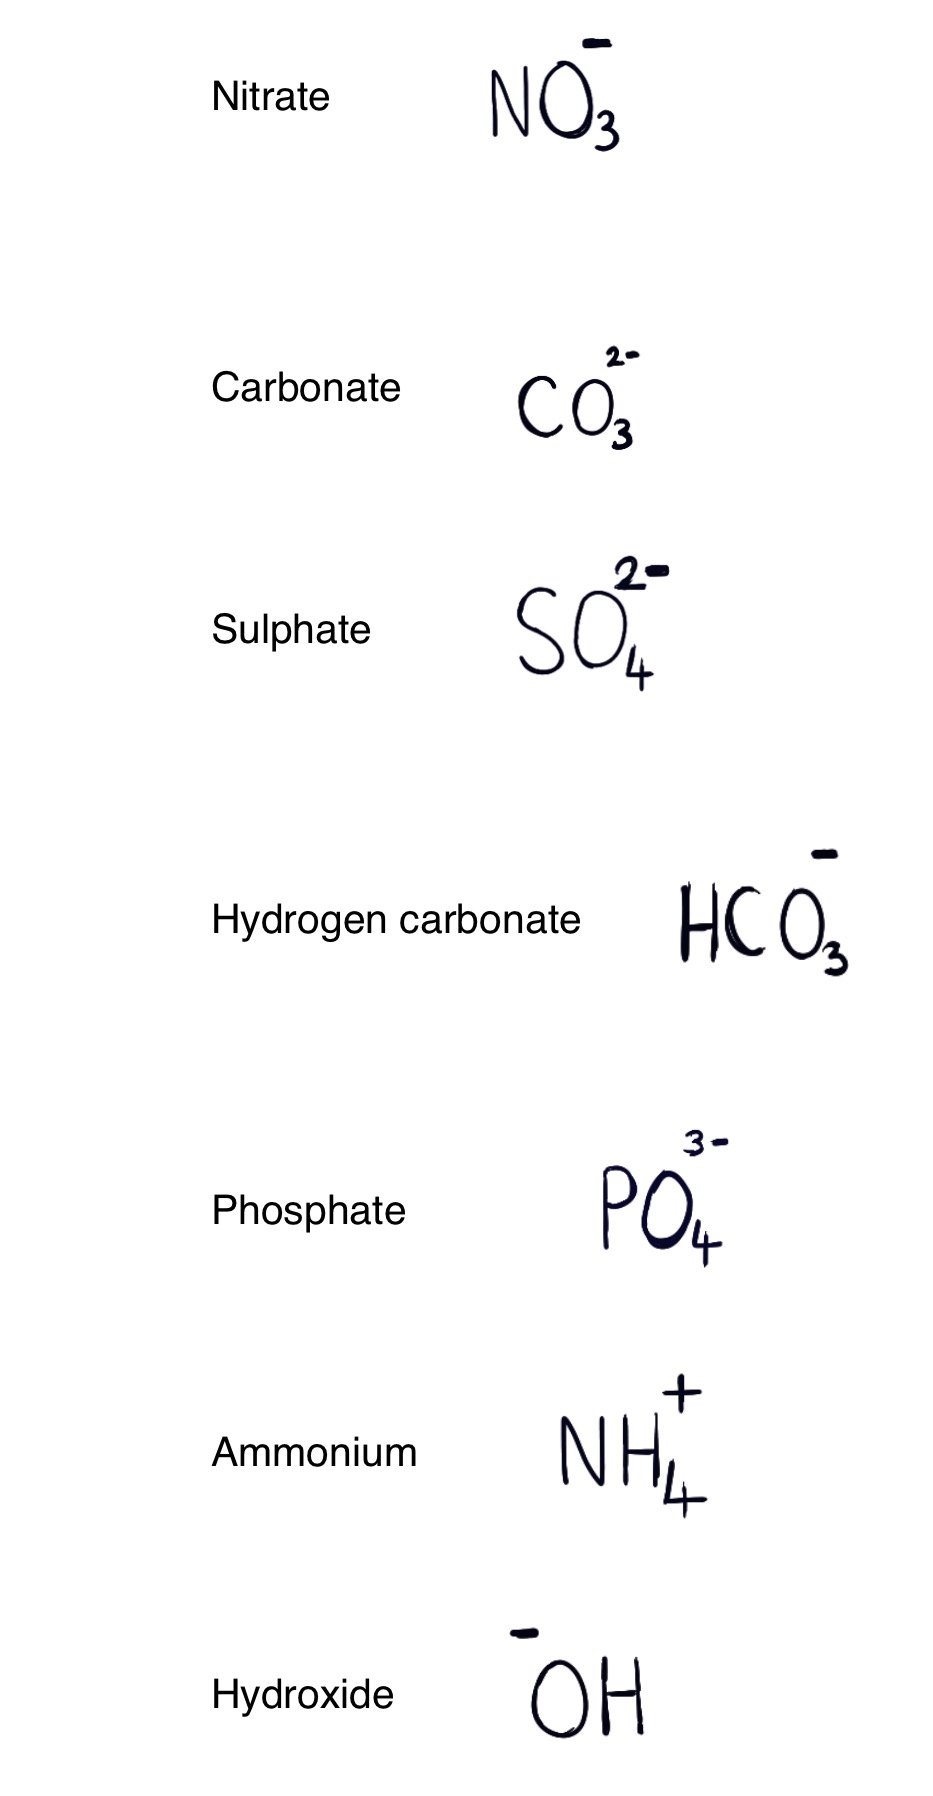 Nitrate NO₃⁻
Carbonate CO₃²⁻
Sulphate SO₄²⁻
Hydrogen carbonate HCO₃⁻
Phosphate PO₄³⁻
Ammonium NH₄⁺
Hydroxide ⁻OH